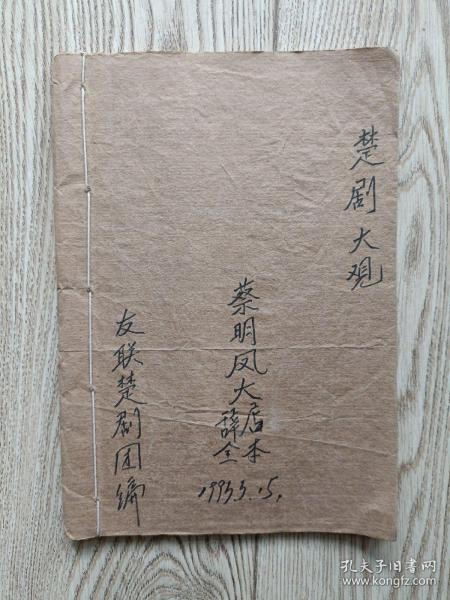 楚剧大观
蔡明凤大辞店全本
1993.3.15.
友联楚剧团编
孔夫子旧书网
www.kongfz.com